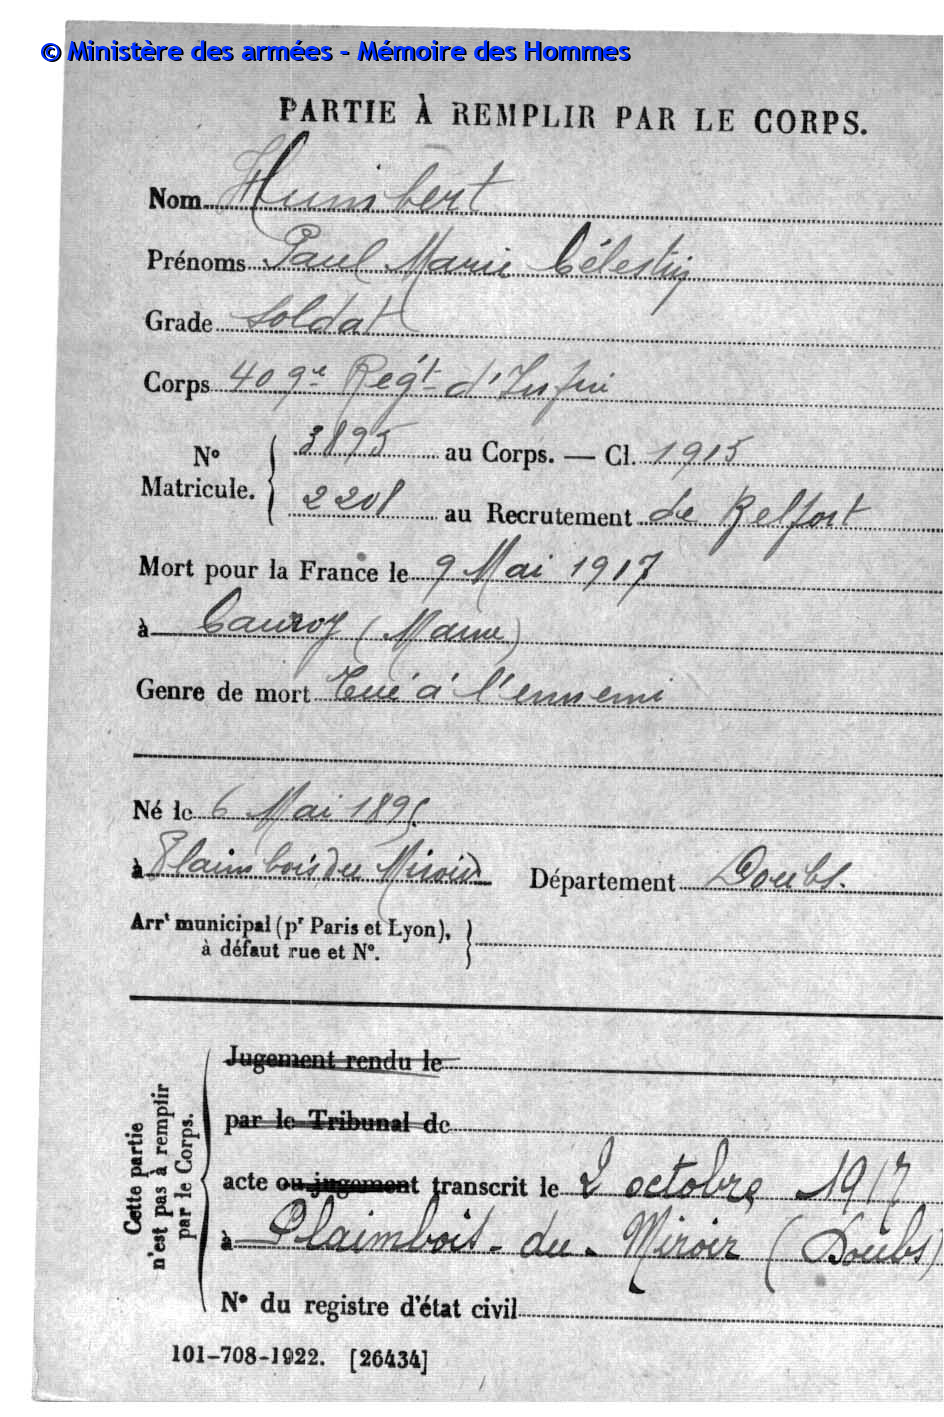 © Ministère des armées - Mémoire des Hommes
PARTIE À REMPLIR PAR LE CORPS.
Nom Humbert
Prénoms Paul Marie Célestin
Grade Soldat
Corps 409e Regt d'Infie
No Matricule. { 3895 au Corps. — Cl. 1915
2208 au Recrutement de Belfort
Mort pour la France le 9 Mai 1917
à Cauroy (Marne)
Genre de mort Tué à l'ennemi
Né le 6 Mai 1895
à Plaimbois du Miroir Département Doubs.
Arrt municipal (pr Paris et Lyon),
à défaut rue et No.
Cette partie
n'est pas à remplir
par le Corps.
Jugement rendu le
par le Tribunal de
acte ou jugement transcrit le 2 octobre 1917
à Plaimbois-du-Miroir (Doubs)
No du registre d'état civil
101-708-1922. [26434]